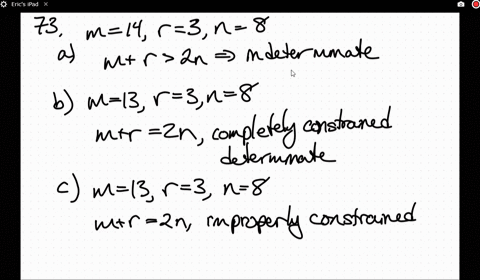 Eric's iPad
73. m=14, r=3, n=8
a) m+r>2n ⇒ indeterminate
b) m=13, r=3, n=8
m+r=2n, completely constrained
determinate
c) m=13, r=3, n=8
m+r=2n, improperly constrained